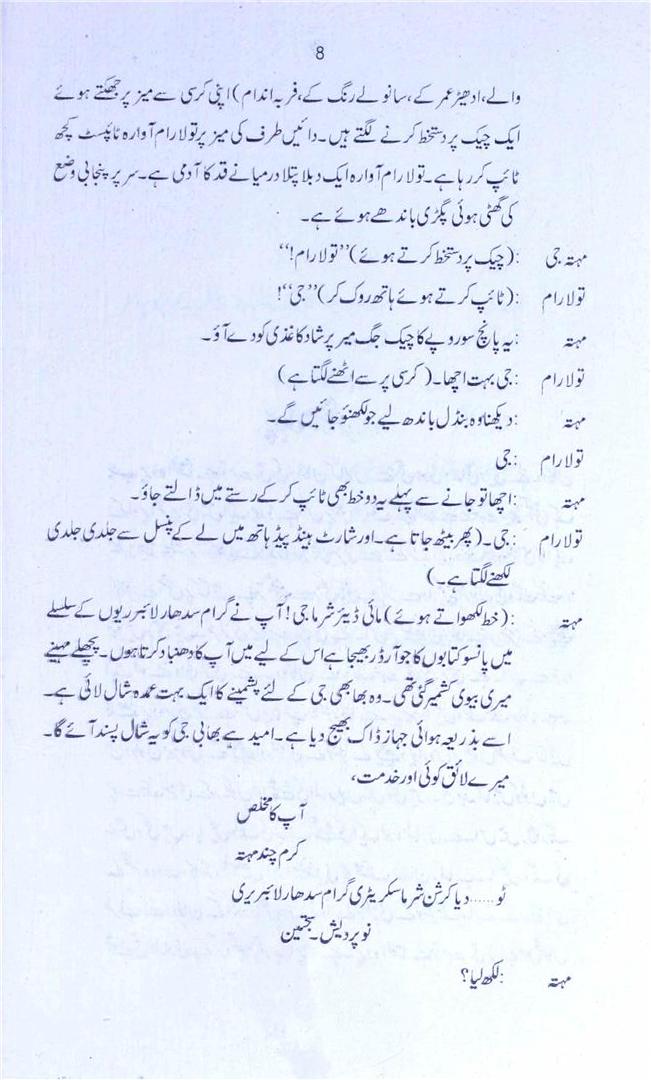 8
والے، ادھیڑ عمر کے، سانولے رنگ کے، فربہ اندام) اپنی کرسی سے میز پر جھکتے ہوئے
ایک چیک پر دستخط کرنے لگتے ہیں۔ دائیں طرف کی میز پر تولا رام آوارہ ٹائپسٹ کچھ
ٹائپ کر رہا ہے۔ تولا رام آوارہ ایک دبلا پتلا درمیانے قد کا آدمی ہے۔ سر پر پنجابی وضع
کی گھٹی ہوئی پگڑی باندھے ہوئے ہے۔
مہتہ جی : (چیک پر دستخط کرتے ہوئے) ’’تولا رام!‘‘
تولا رام : (ٹائپ کرتے ہوئے ہاتھ روک کر) ’’جی‘‘!
مہتہ : یہ پانچ سو روپے کا چیک جگ میر پرشاد کاغذی کو دے آؤ۔
تولا رام : جی بہت اچھا۔ (کرسی پر سے اٹھنے لگتا ہے)
مہتہ : دیکھنا وہ بنڈل باندھ لیے جو لکھنؤ جائیں گے۔
تولا رام : جی
مہتہ : اچھا تو جانے سے پہلے یہ دو خط بھی ٹائپ کر کے رستے میں ڈالتے جاؤ۔
تولا رام : جی۔ (پھر بیٹھ جاتا ہے۔ اور شارٹ ہینڈ پیڈ ہاتھ میں لے کے پنسل سے جلدی جلدی
لکھنے لگتا ہے۔)
مہتہ : (خط لکھواتے ہوئے) مائی ڈیئر شرما جی! آپ نے گرام سدھار لائبریریوں کے سلسلے
میں پانسو کتابوں کا جو آرڈر بھیجا ہے اس کے لیے میں آپ کا دھنباد کرتا ہوں۔ پچھلے مہینے
میری بیوی کشمیر گئی تھی۔ وہ بھابھی جی کے لئے پشمینے کا ایک بہت عمدہ شال لائی ہے۔
اسے بذریعہ ہوائی جہاز ڈاک بھیج دیا ہے۔ امید ہے بھابی جی کو یہ شال پسند آئے گا۔
میرے لائق کوئی اور خدمت،
آپ کا مخلص
کرم چند مہتہ
ٹو...... دیا کرشن شرما سکریٹری گرام سدھار لائبریری
نو پردیش۔
مہتہ : لکھ لیا؟